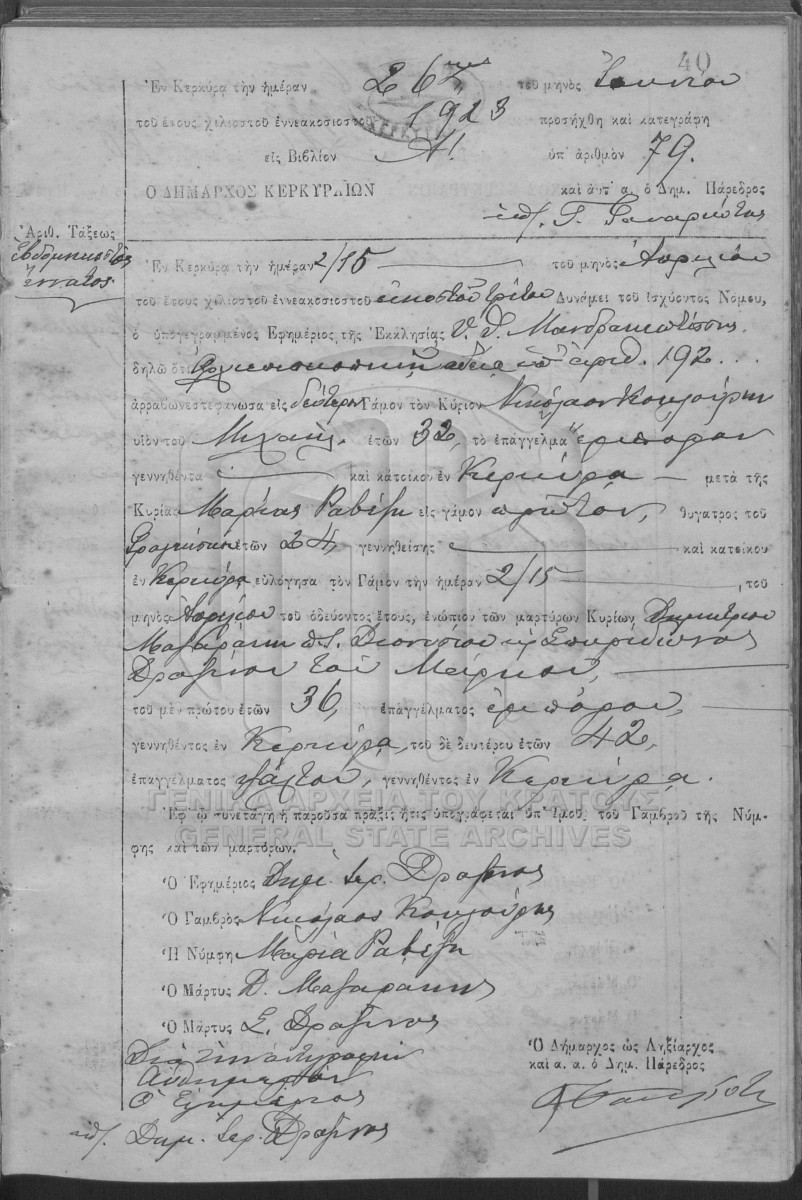 40
Ἐν Κερκύρᾳ τὴν ἡμέραν 26ην τοῦ μηνὸς Ἰουνίου
τοῦ ἔτους χιλιοστοῦ ἐννεακοσιοστοῦ 1923 προσήχθη καὶ κατεγράφη
εἰς Βιβλίον Α! ὑπ' ἀριθμὸν 79.
Ο ΔΗΜΑΡΧΟΣ ΚΕΡΚΥΡΑΙΩΝ καὶ ἀντ' α. ὁ Δημ. Πάρεδρος
Ἀριθ. Τάξεως
ἑβδομηκοστὸς
ἔννατος
Ἐν Κερκύρᾳ τὴν ἡμέραν 2/15 τοῦ μηνὸς Ἀπριλίου
τοῦ ἔτους χιλιοστοῦ ἐννεακοσιοστοῦ εἰκοστοῦ τρίτου Δυνάμει τοῦ ἰσχύοντος Νόμου,
ὁ ὑπογεγραμμένος Ἐφημέριος τῆς Ἐκκλησίας Υ. Θ. Μανδρακιωτίσσης
δηλῶ ὅτι Ἀρχιεπισκοπικῇ ἀδείᾳ ὑπ' ἀριθ. 192...
ἀρραβωνεστεφάνωσα εἰς δεύτερον Γάμον τὸν Κύριον Νικόλαον Κουλούρην
υἱὸν τοῦ Μιχαήλ. ἐτῶν 32, τὸ ἐπάγγελμα ἔμπορον
γεννηθέντα καὶ κάτοικον ἐν Κερκύρᾳ μετὰ τῆς
Κυρίας Μαρίας Ραβέζη εἰς γάμον πρῶτον, θυγατρὸς τοῦ
Φραγκίσκου ἐτῶν 24, γεννηθείσης καὶ κατοίκου
ἐν Κερκύρᾳ εὐλόγησα τὸν Γάμον τὴν ἡμέραν 2/15, τοῦ
μηνὸς Ἀπριλίου τοῦ ὁδεύοντος ἔτους, ἐνώπιον τῶν μαρτύρων Κυρίων Δημητρίου
Μαζαράκη π. Διονυσίου κ. Σπυρίδωνος
Δραζίνου τοῦ Μάρκου,
τοῦ μὲν πρώτου ἐτῶν 36, ἐπαγγέλματος ἐμπόρου,
γεννηθέντος ἐν Κερκύρᾳ, τοῦ δὲ δευτέρου ἐτῶν 42,
ἐπαγγέλματος ψάλτου, γεννηθέντος ἐν Κερκύρᾳ.
ΓΕΝΙΚΑ ΑΡΧΕΙΑ ΤΟΥ ΚΡΑΤΟΥΣ
Ἐφ' ᾧ συνετάγη ἡ παροῦσα πρᾶξις ἥτις ὑπογράφεται ὑπ' ἐμοῦ, τοῦ Γαμβροῦ τῆς Νύμ-
GENERAL STATE ARCHIVES
φης καὶ τῶν μαρτύρων.
Ὁ Ἐφημέριος Δημ. Ἱερ. Δραζῖνος
Ὁ Γαμβρὸς Νικόλαος Κουλούρης
Ἡ Νύμφη Μαρία Ραβέζη
Ὁ Μάρτυς Δ. Μαζαράκης
Ὁ Μάρτυς Σ. Δραζῖνος
Διὰ τὴν ἀντιγραφὴν
Αὐθημερὸν
Ὁ Ἐφημέριος
Δημ. Ἱερ. Δραζῖνος
Ὁ Δήμαρχος ὡς Ληξίαρχος
καὶ α. α. ὁ Δημ. Πάρεδρος